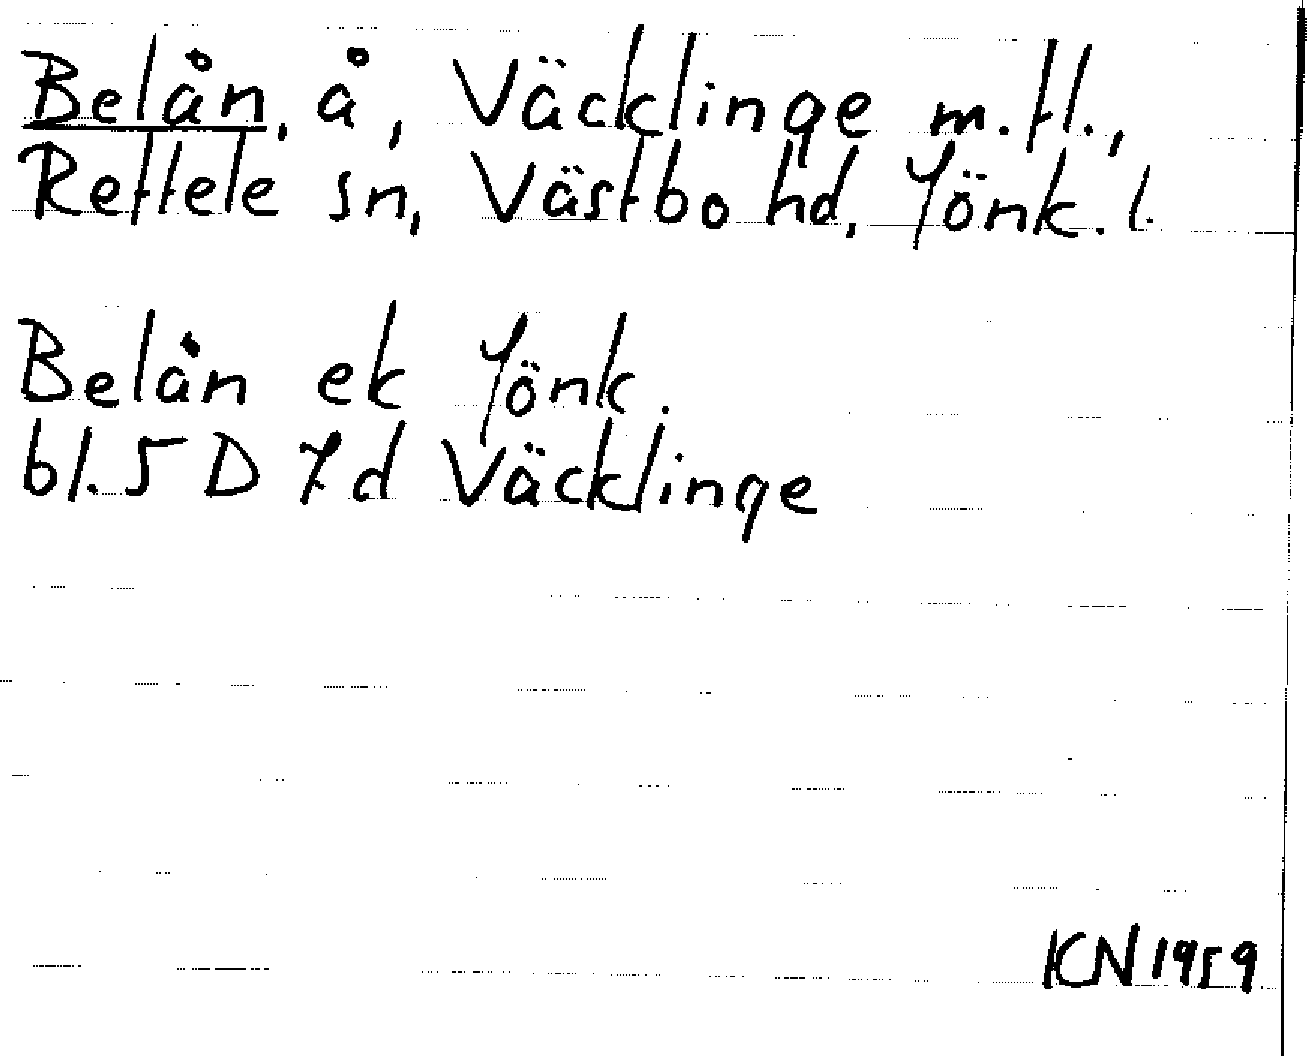 Belån, å, Väcklinge m.fl.,
Reftele sn, Västbo hd, Jönk. l.
Belån ek Jönk.
bl. 5 D 7 d Väcklinge
KN 1959